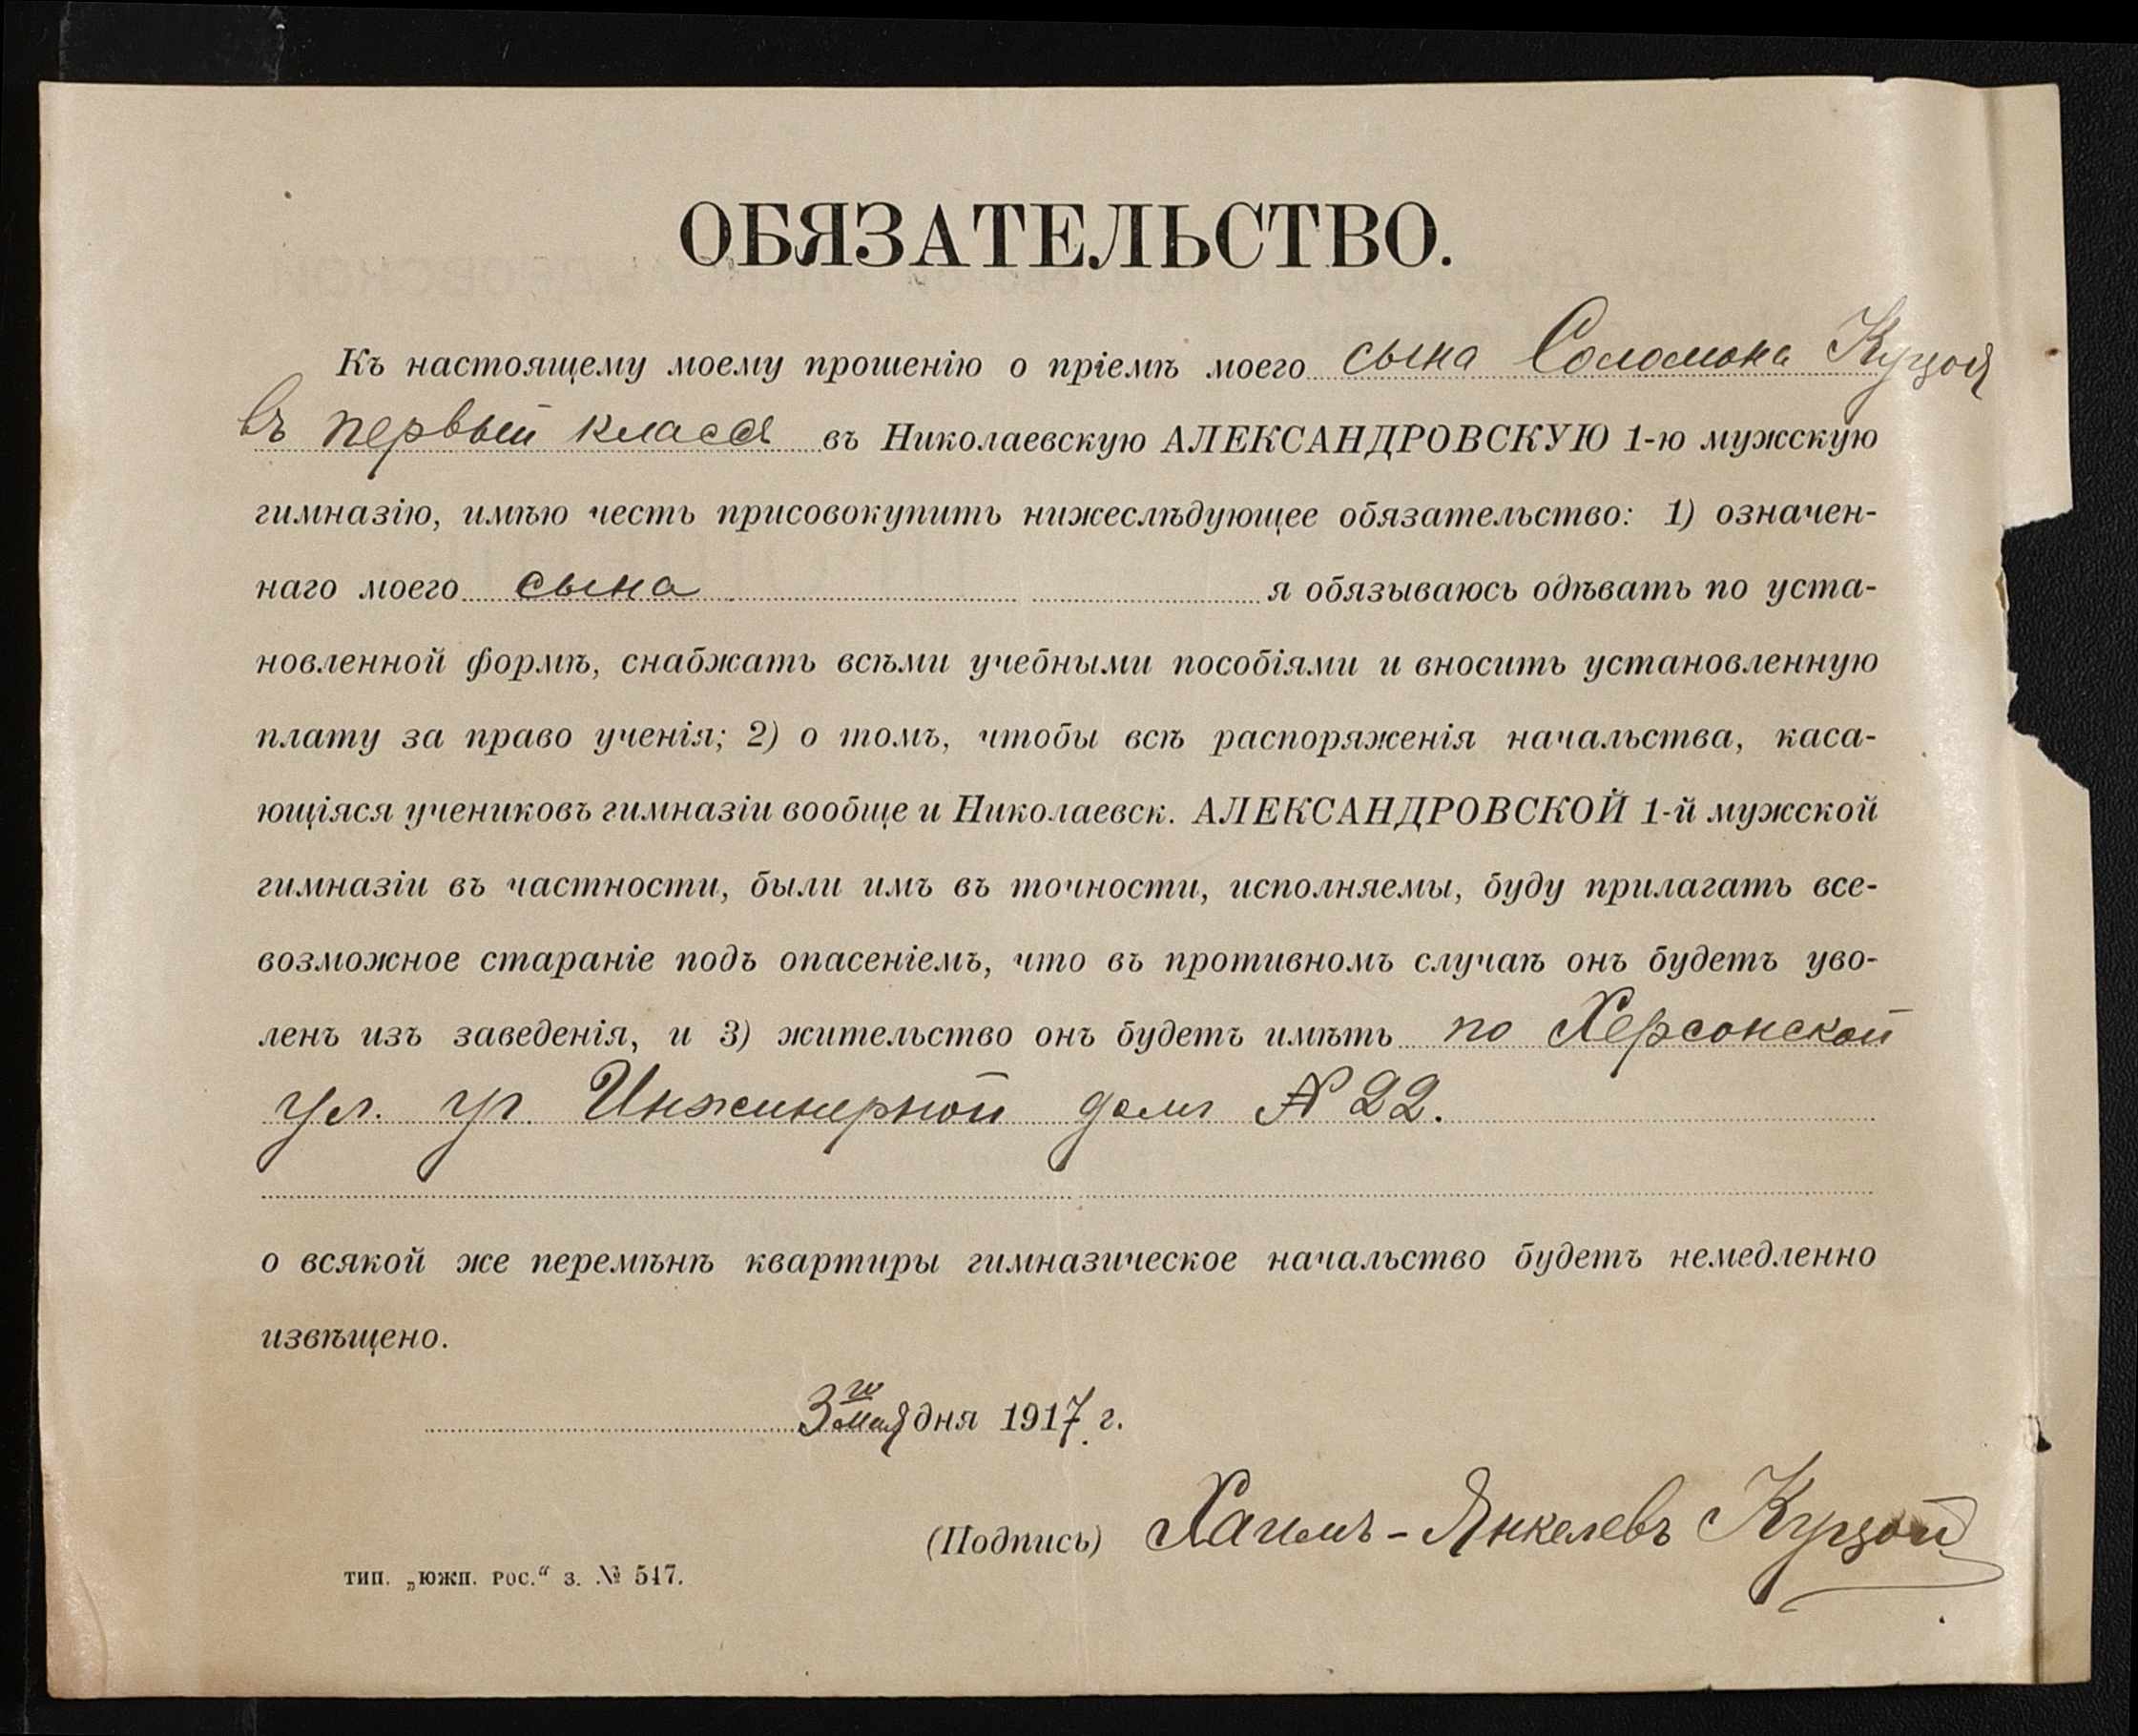 ОБЯЗАТЕЛЬСТВО.
Къ настоящему моему прошенію о пріемѣ моего сына Соломона Куцой
въ первый классъ въ Николаевскую АЛЕКСАНДРОВСКУЮ 1-ю мужскую
гимназію, имѣю честь присовокупить нижеслѣдующее обязательство: 1) означен-
наго моего сына я обязываюсь одѣвать по уста-
новленной формѣ, снабжать всѣми учебными пособіями и вносить установленную
плату за право ученія; 2) о томъ, чтобы всѣ распоряженія начальства, каса-
ющіяся учениковъ гимназіи вообще и Николаевск. АЛЕКСАНДРОВСКОЙ 1-й мужской
гимназіи въ частности, были имъ въ точности, исполняемы, буду прилагать все-
возможное стараніе подъ опасеніемъ, что въ противномъ случаѣ онъ будетъ уво-
ленъ изъ заведенія, и 3) жительство онъ будетъ имѣть по Херсонской
ул. уг. Инжинерной домъ № 22.
о всякой же перемѣнѣ квартиры гимназическое начальство будетъ немедленно
извѣщено.
3го мая дня 1917 г.
(Подпись) Хаимъ-Янкелевъ Куцой
тип. „южн. рос.“ з. № 517.